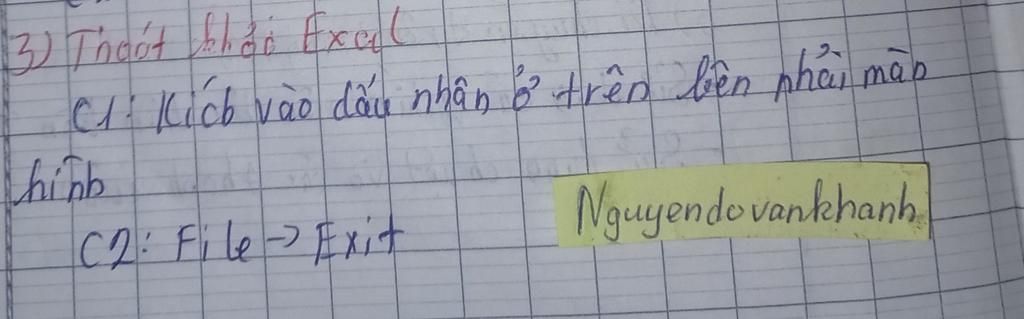 3) Thoát khỏi Excel
C1: Kích vào dấu nhân ở trên bên phải màn
hình
C2: File → Exit
Nguyendovankhanh